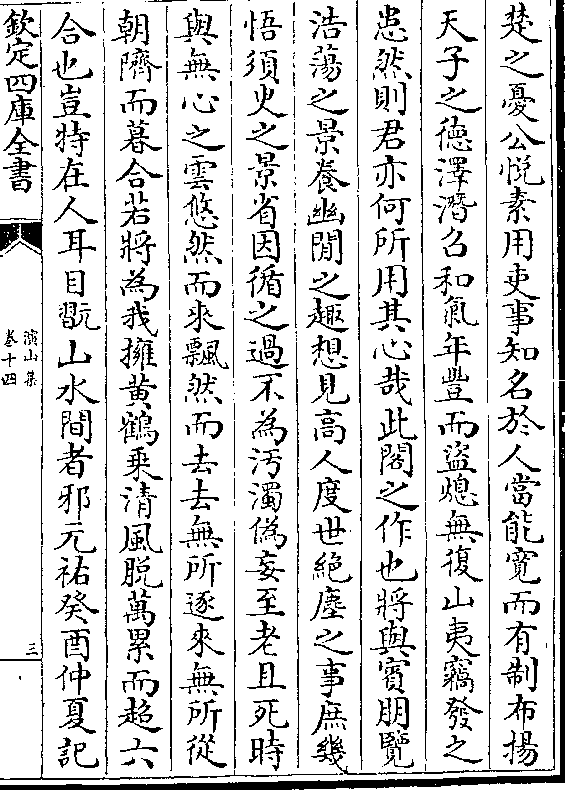 楚之憂公悦素用吏事知名於人當能寛而有制布揚
天子之徳澤潛召和氣年豐而盜熄無復山夷竊發之
患然則君亦何所用其心哉此閣之作也將與賓朋覽
浩蕩之景養幽閒之趣想見高人度世絶塵之事庶幾
悟須臾之景省因循之過不為汚濁偽妄至老且死時
與無心之雲悠然而來飄然而去去無所逐來無所從
朝隮而暮合若將為我擁黄鶴乗清風脱萬累而超六
合也豈特在人耳目翫山水間者邪元祐癸酉仲夏記
欽定四庫全書
演山集
卷十四
三